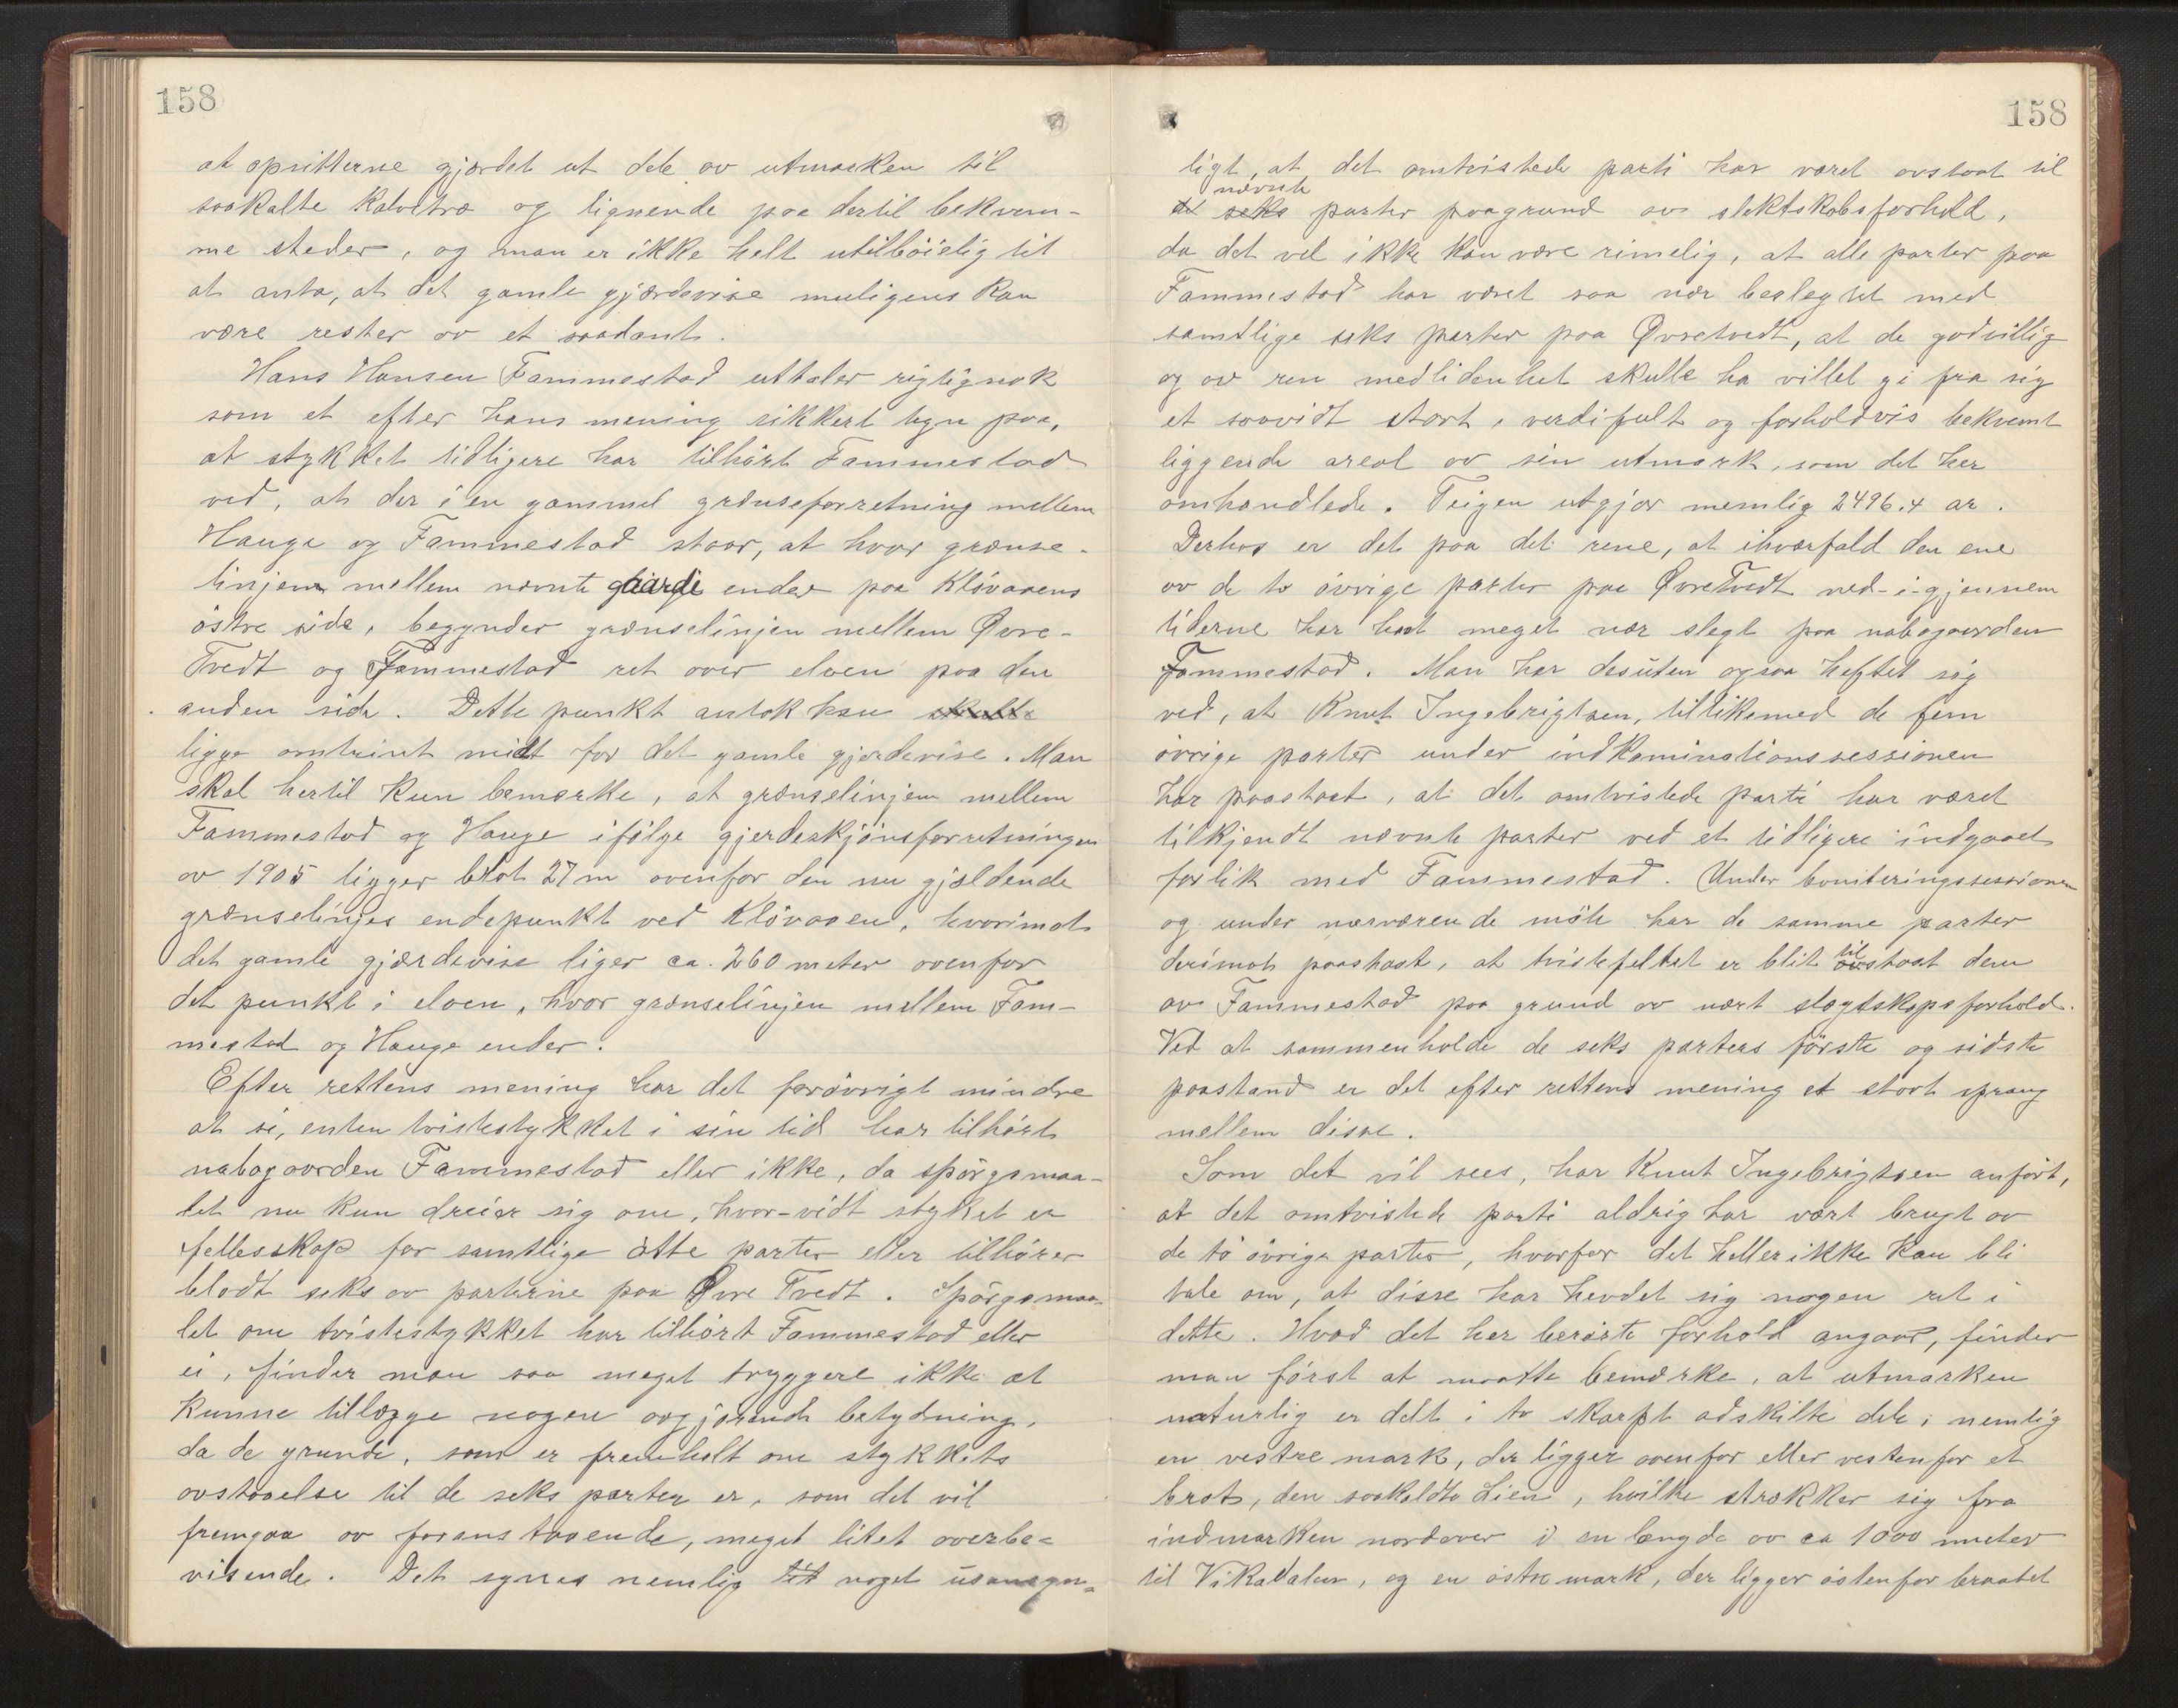 158
at opsitterne gjærdet ut dele av utmarken til
saakalte kalvetræ og lignende paa dertil bekvem-
me steder, og man er ikke helt utilbøielig til
at anta, at det gamle gjærdevise muligens kan
være rester av et saadant.
Hans Hansen Fammestad uttaler rigtignok
som et efter hans mening sikkert tegn paa,
at stykket tidligere har tilhört Fammestad
ved, at der i en gammel grænseforretning mellem
Hauge og Fammestad staar, at hvor grænse-
linjen mellem nævnte gaarde ender paa Klövaaens
östre side, begynder grænselinjen mellem Øvre-
Tvedt og Fammestad ret over elven paa den
anden side. Dette punkt antok han skulle
ligge omtrint midt for det gamle gjerdevise. Man
skal hertil kun bemærke, at grænselinjen mellem
Fammestad og Hauge ifölge gjerdeskjönsforretningen
av 1905 ligger blot 27 m ovenfor den nu gjældende
grænselinjes endepunkt ved Klövaaen, hvorimot
det gamle gjærdevise liger ca. 260 meter ovenfor
det punkt i elven, hvor grænselinjen mellem Fam-
mestad og Hauge ender.
Efter rettens mening har det forövrigt mindre
at si, enten tvistestykket i sin tid har tilhört
nabogaarden Fammestad eller ikke, da spörgsmaa-
let nu kun dreier sig om, hvor-vidt styket er
fellesskap for samtlige otte parter eller tilhører
blodt seks av parterne paa Øvre Tvedt. Spörgsmaa-
let om tvistestykket har tilhört Fammestad eller
ei, finder man saa meget tryggere ikke at
kunne tillægge nogen avgjörende betydning,
da de grunde, som er fremholt om stykkets
avstaaelse til de seks parter er, som det vil
fremgaa av foranstaaende, meget litet overbe-
visende. Det synes nemlig tit noget usansyn-
158
ligt, at det omtvistede parti har været avstaat til
nævnte
de seks parter paagrund av slektskabsforhold,
da det vel ikke kan være rimelig, at alle parter paa
Fammestad har været saa nær beslegtet med
samtlige seks parter paa Øvretvedt, at de godvillig
og av ren medlidenhet skulle ha villet gi fra sig
et saavidt stort, verdifult og forholdvis bekvemt
liggende areal av sin utmark, som det her
omhandlede. Teigen utgjør nemlig 2496.4 ar.
Derhos er det paa det rene, at ihværfald den ene
av de to övrige parter paa Øvretvedt ned-i-gjennem
tiderne har hat meget nær slegt paa nabogaarden
Fammestad. Man har desuten ogsaa heftet sig
ved, at Knut Ingebrigtsen, tillikemed de fem
övrige parter under indkaminationssessionen
har paastaat, at det omtvistede parti har været
tilkjendt nævnte parter ved et tidligere indgaaet
forlik med Fammestad. Under boniteringssessionen
og under nærværende möte har de samme parter
derimot paastaat, at tvistefeltet er blit avstaat dem
til
av Fammestad paa grund av nært slægtskapsforhold.
Ved at sammenholde de seks parters förste og sidste
paastand er det efter rettens mening et stort sprang
mellem disse.
Som det vil sees, har Knut Ingebrigtsen anført,
at det omtvistede parti aldrig har vært brugt av
de to övrige parter, hvorfor det heller ikke kan bli
tale om, at disse har hevdet sig nogen ret i
dette. Hvad det her berørte forhold angaar, finder
man först at maatte bemærke, at utmarken
naturlig er delt i to skarpt adskilte dele, nemlig
en vestre mark, der ligger ovenfor eller vestenfor et
brat, den saakaldte Lien, hvilke strækker sig fra
indmarken nordover i en længde av ca 1000 meter
til Vikadalen, og en östre mark, der ligger östenfor braatet